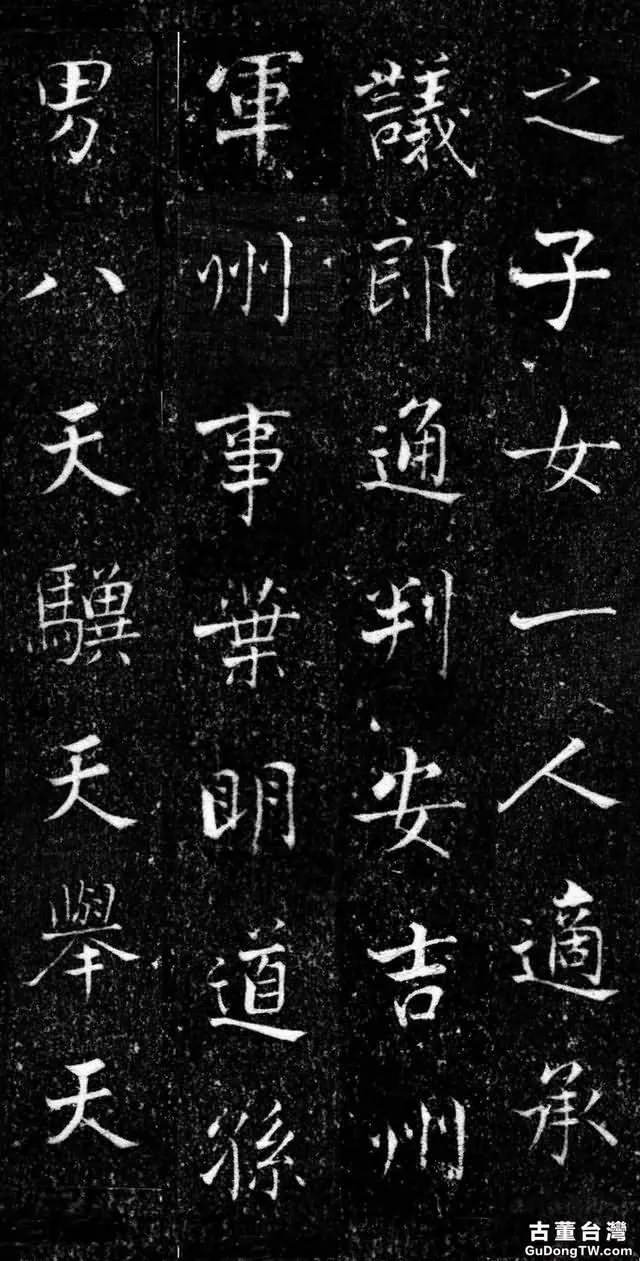 之子女一人適承
議郎通判安吉州
軍州事葉明道孫
男八天驥天舉天
古董台灣
GuDongTW.com